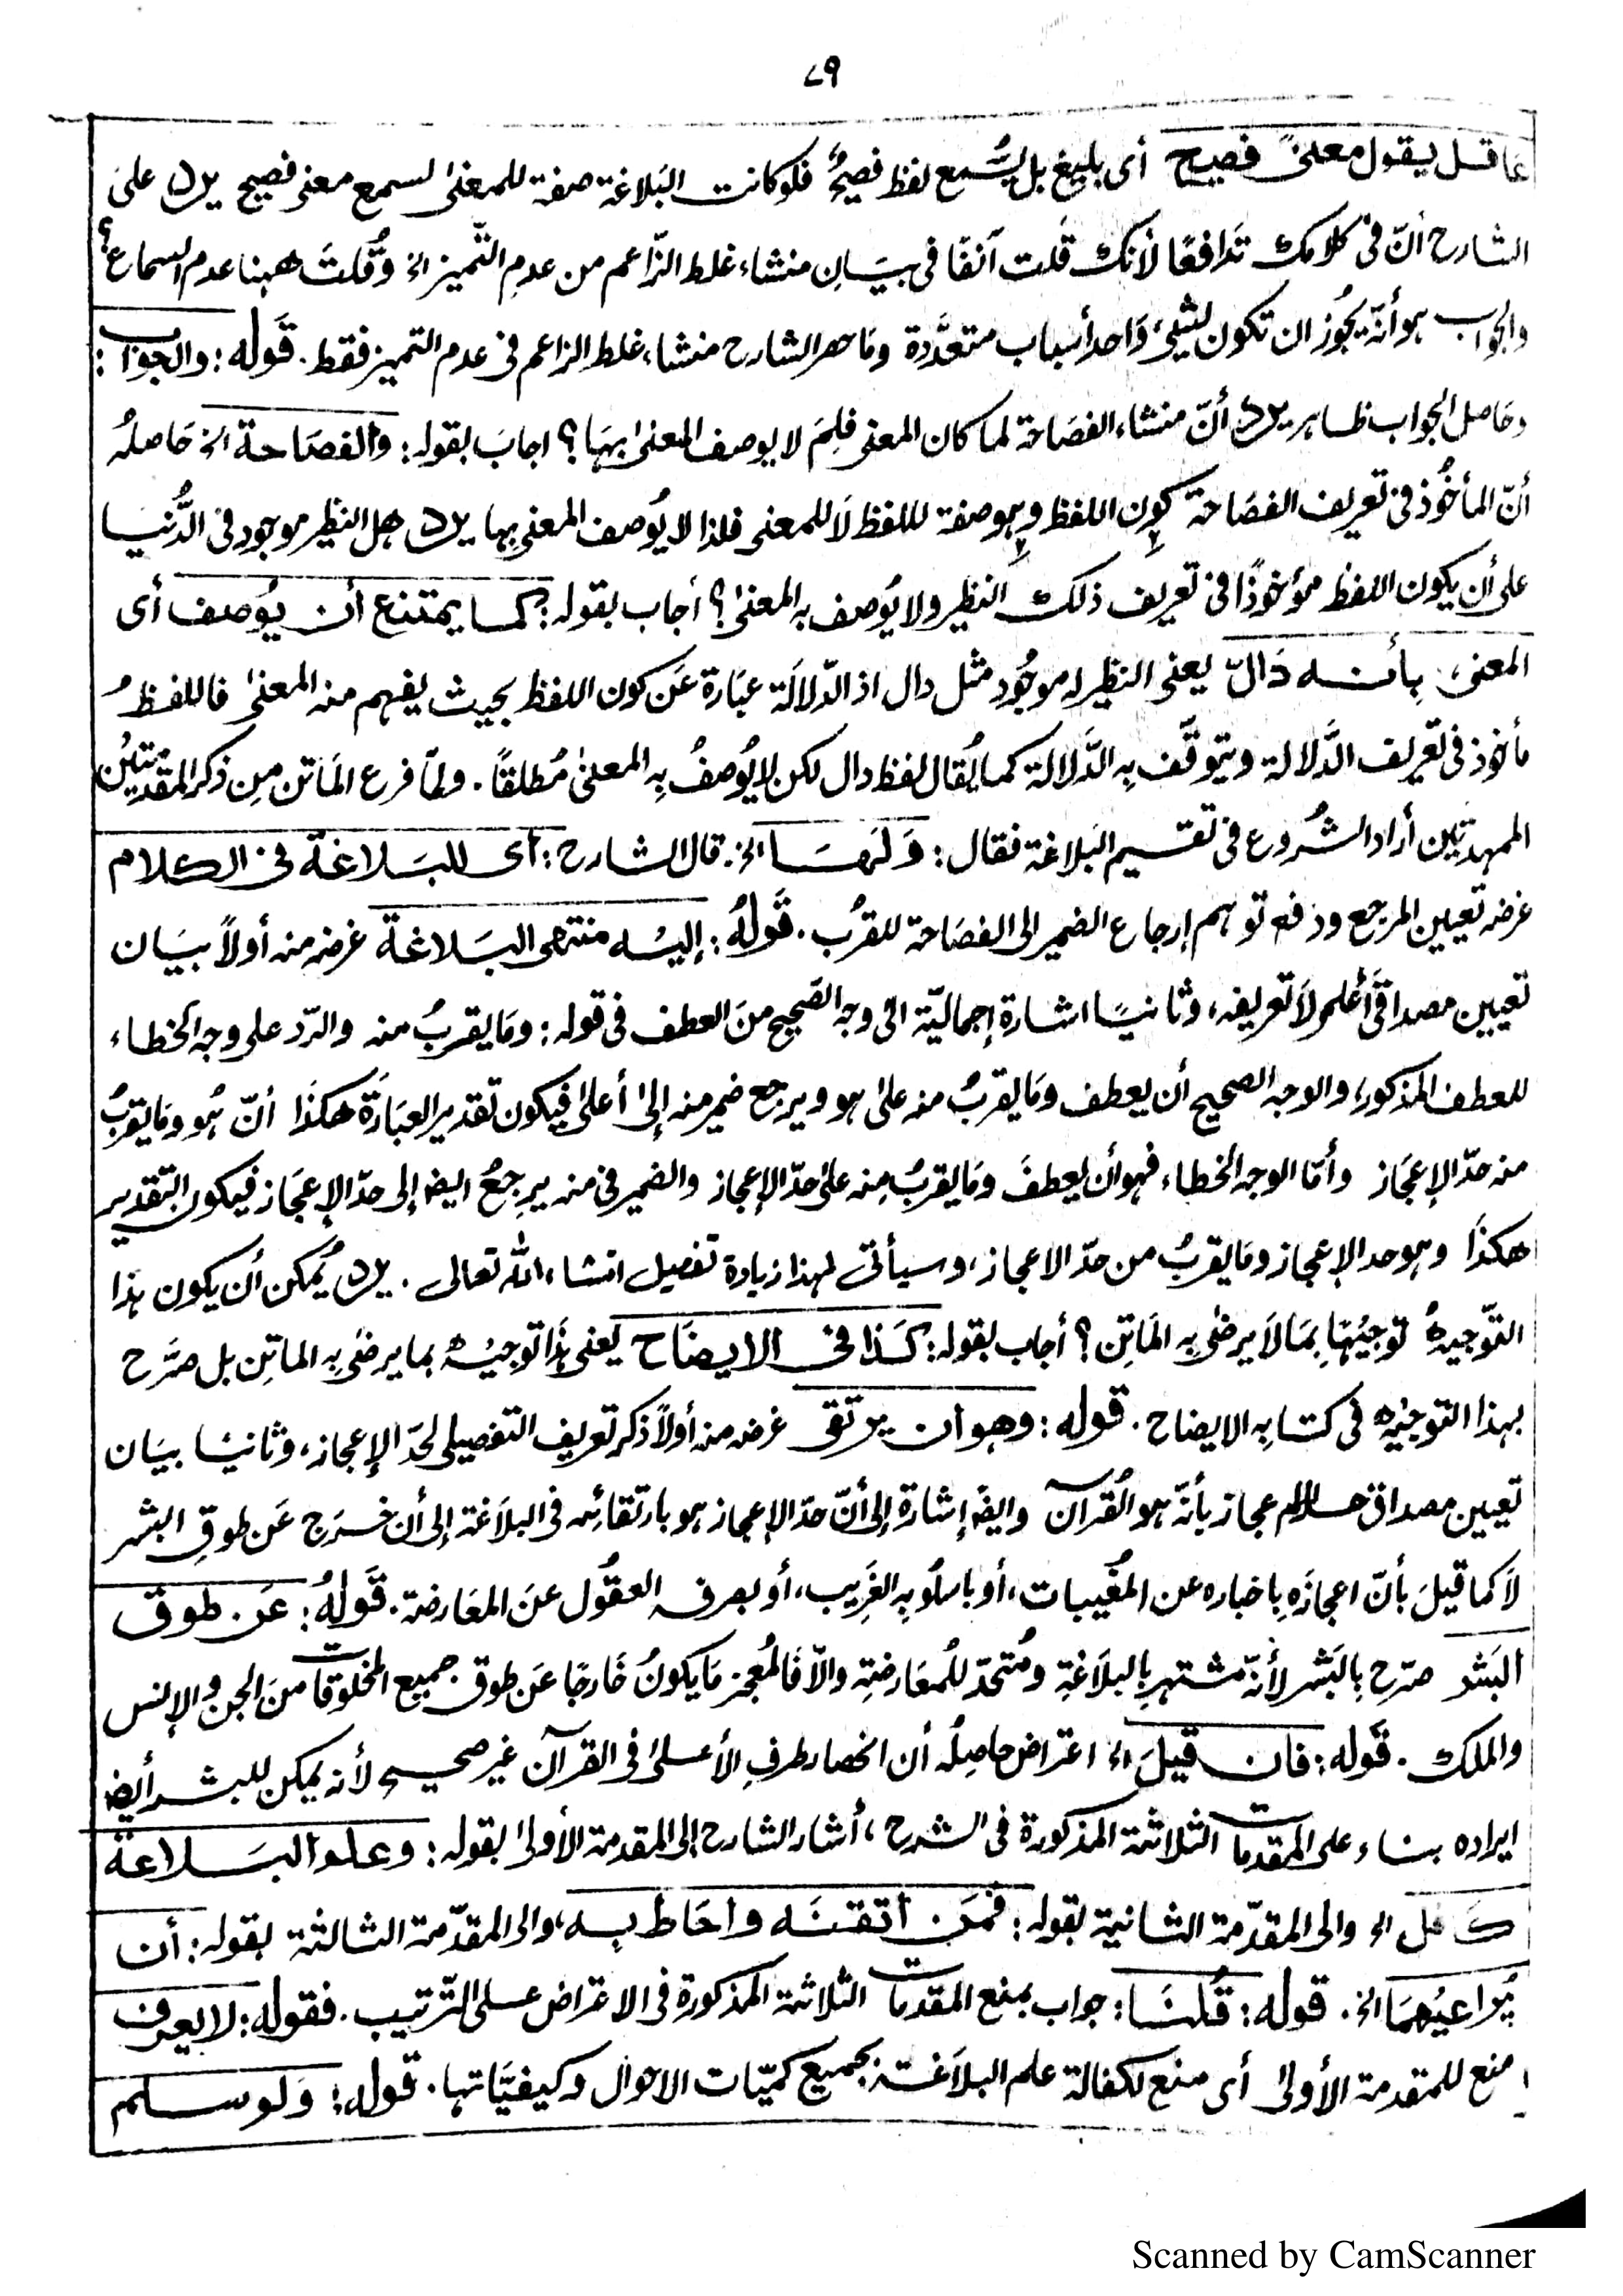 ٧٩
عاقل يقول معنىً فصيح أى بليغ بل يُسمع لفظ فصيحٌ فلوكانت البَلاغة صفة للمعنىٰ لسمع معنى فصيح يرد علىٰ
الشارح أنّ فى كلامك تَدافعًا لأنك قلت آنفًا فى بيَانِ منشاء غلط الزّاعم من عدمِ التّميز الخ وقُلتَ ههنا عدم السماع؟
والجواب هو أنّه يجُوز ان تكون لشئٍ وَاحد أسباب متعدَّدة ومَا حصر الشارح منشاء غلط الزاعم فى عدم التميز فقط. قَوله: والجَوَاب:
وحَاصل الجواب ظاهر يرد أنّ منشاء الفصَاحة لما كان المعنى فلِمَ لا يوصف المعنىٰ بهَا؟ اجابَ بقوله: وَالفصَاحة الخ حَاصلهُ
أنّ المأخُوذ فى تعريف الفصَاحة كون اللفظ وهو صفة لللفظ لَا للمعنى فلذا لا يُوصف المعنىٰ بها يرد هل النظير موجود فى الدُّنيا
على أن يكون اللفظ مؤخوذًا فى تعريف ذلك النظير ولا يُوصف به المعنىٰ؟ أجاب بقوله: كمَا يمتنع أن يُوصف أى
المعنى، بِأنه دَالّ يعنى النظير له موجُود مثل دال اذ الدّلالَة عبَارة عَن كون اللفظ بحيث يفهم منه المعنىٰ فاللفظُ
مأخوذ فى تعريف الدَّلالة ويتوقَّف بِه الدَّلالة كما يُقال لفظ دال لكن لا يُوصفُ بِه المعنىٰ مُطلقًا. ولمّا فرع المَاتن مِن ذكر المقدمَّتيْن
الممهدتيْن أراد الشُروع فى تقسيم البَلاغة فقال: وَلَهَا الخ. قال الشارح: أى للبَلاغة فى الكلام
غرضه تعيين المرجع ودفع توهم إرجاع الضمير الى الفصَاحة للقربُ. قَولهُ: إليْه منتهى البَلاغة غرضه منه أولاً بيَان
تعيين مصداق أعلم لَا تعريفه، وثانيًا اشارة إجماليّة الى وجه الصّحيح منَ العطف فى قوله: ومَا يقربُ منه والرّد على وجه الخطاء
للعطف المذكور، والوجه الصحيح أن يعطف ومَا يقربُ منه علىٰ هو ويرجع ضمير منه إلىٰ أعلىٰ فيكون تقدير العبَارَة هكذَا أنّ هُو ومَا يقربُ
منه حدّ الإعجَاز وأمّا الوجه الخطاء فهو أن يعطفَ ومَا يقربُ مِنه علىٰ حدّ الإعجاز والضمير فى منه يرجعُ ايضا إلى حدّ الإعجَاز فيكون التقدير
هكذَا وهو حد الإعجاز ومَا يقربُ من حدّ الاعجاز، وسيأتى لهذا زيادة تفصيل انشاء الله تعالى. يرد يُمكن أن يكون هٰذا
التّوجيهُ توجيْهًا بمَا لَا يرضىٰ بِه المَاتِن؟ أجاب بقوله: كَذا فى الايضَاح يعنى هٰذَا توجيْه بما يرضىٰ بِه الماتِن بل صَرّح
بهذا التوجيْهِ فى كتابِه الايضاح. قوله: وهو أن يرتقى غرضه منه أولاً ذكر تعريف التفصيلى لحدّ الإعجاز، وثانيًا بيَان
تعيين مصداق حد الاعجاز بأنّه هو القُرآن وايضا إشارة إلى أنّ حدّ الإعجاز هو بارتقائه فى البلاَغة إلى أن خرَج عَن طوقِ البشر
لَا كما قيلَ بأنّ اعجازَه بِاخباره عن المغُيبات، أو باسلُوبِه الغَريب، أو بصرفه العقُول عنَ المعَارضة. قَولهُ: عَن طوق
البَشر صرّح بِالبَشر لأنّه مشتهر بالبلاغةِ ومُتحدّ للمُعَارضتِه والاّ فَالمُعجز مَا يكونُ خَارجًا عَن طوق جميع المخلوقات منَ الجن والإنس
والملك. قَوله: فان قيلَ الخ اعتراض حاصِلُه أن انحصار طرفِ الأعلىٰ فى القرآن غير صحيح لأنه يمكن للبشر أيضا
ايراده بناء على المقدمات الثلاثة المذكورة فى الشرح، أشار الشارح إلى المقدمة الأولىٰ بقوله: وعلم البَلاغة
كَافل الخ والى المقدّمة الثانية بقوله: فمَن أتقنَه وأحَاط به، والى المقدّمة الثالثة بقوله: أن
يُراعيَهمَا الخ. قوله: قُلنَا: جواب بمنع المقدمات الثلاثة المذكورة فى الاعتراض على التّرتيب. فقوله: لا يعرف
منع للمقدمة الأولىٰ أى منع لكفالة علم البلاَغة بجميع كميّات الاحوال وكيفيَّاتها. قوله: وَلو سلم
Scanned by CamScanner